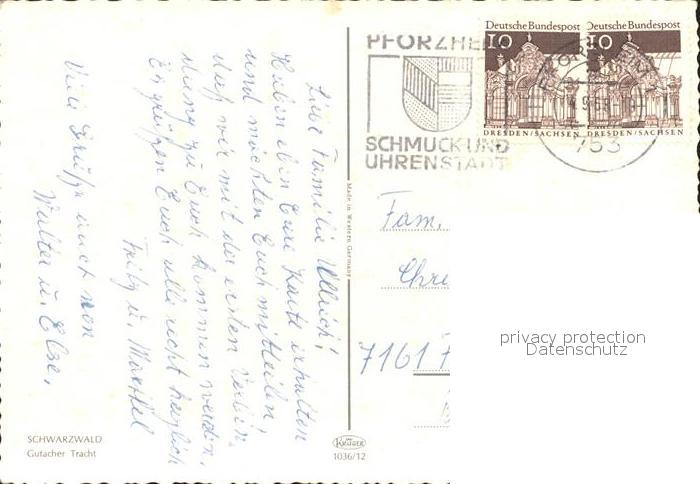 Liebe Familie Ullrich!
Haben eben Eure Karte erhalten
und möchten Euch mitteilen!
daß wir mit der ersten Verbin-
dung zu Euch kommen werden.
Es grüßen Euch alle recht herzlich
Fritz u.
Viele Grüße auch von
Walter u. Else.
SCHWARZWALD
Gutacher Tracht
Made in Western Germany
KRÜGER
1036/12
PFORZHEIM
SCHMUCK UND
UHRENSTADT
Deutsche Bundespost
10
DRESDEN/SACHSEN
Deutsche Bundespost
10
DRESDEN/SACHSEN
753
Fam.
Chri
7161
privacy protection
Datenschutz